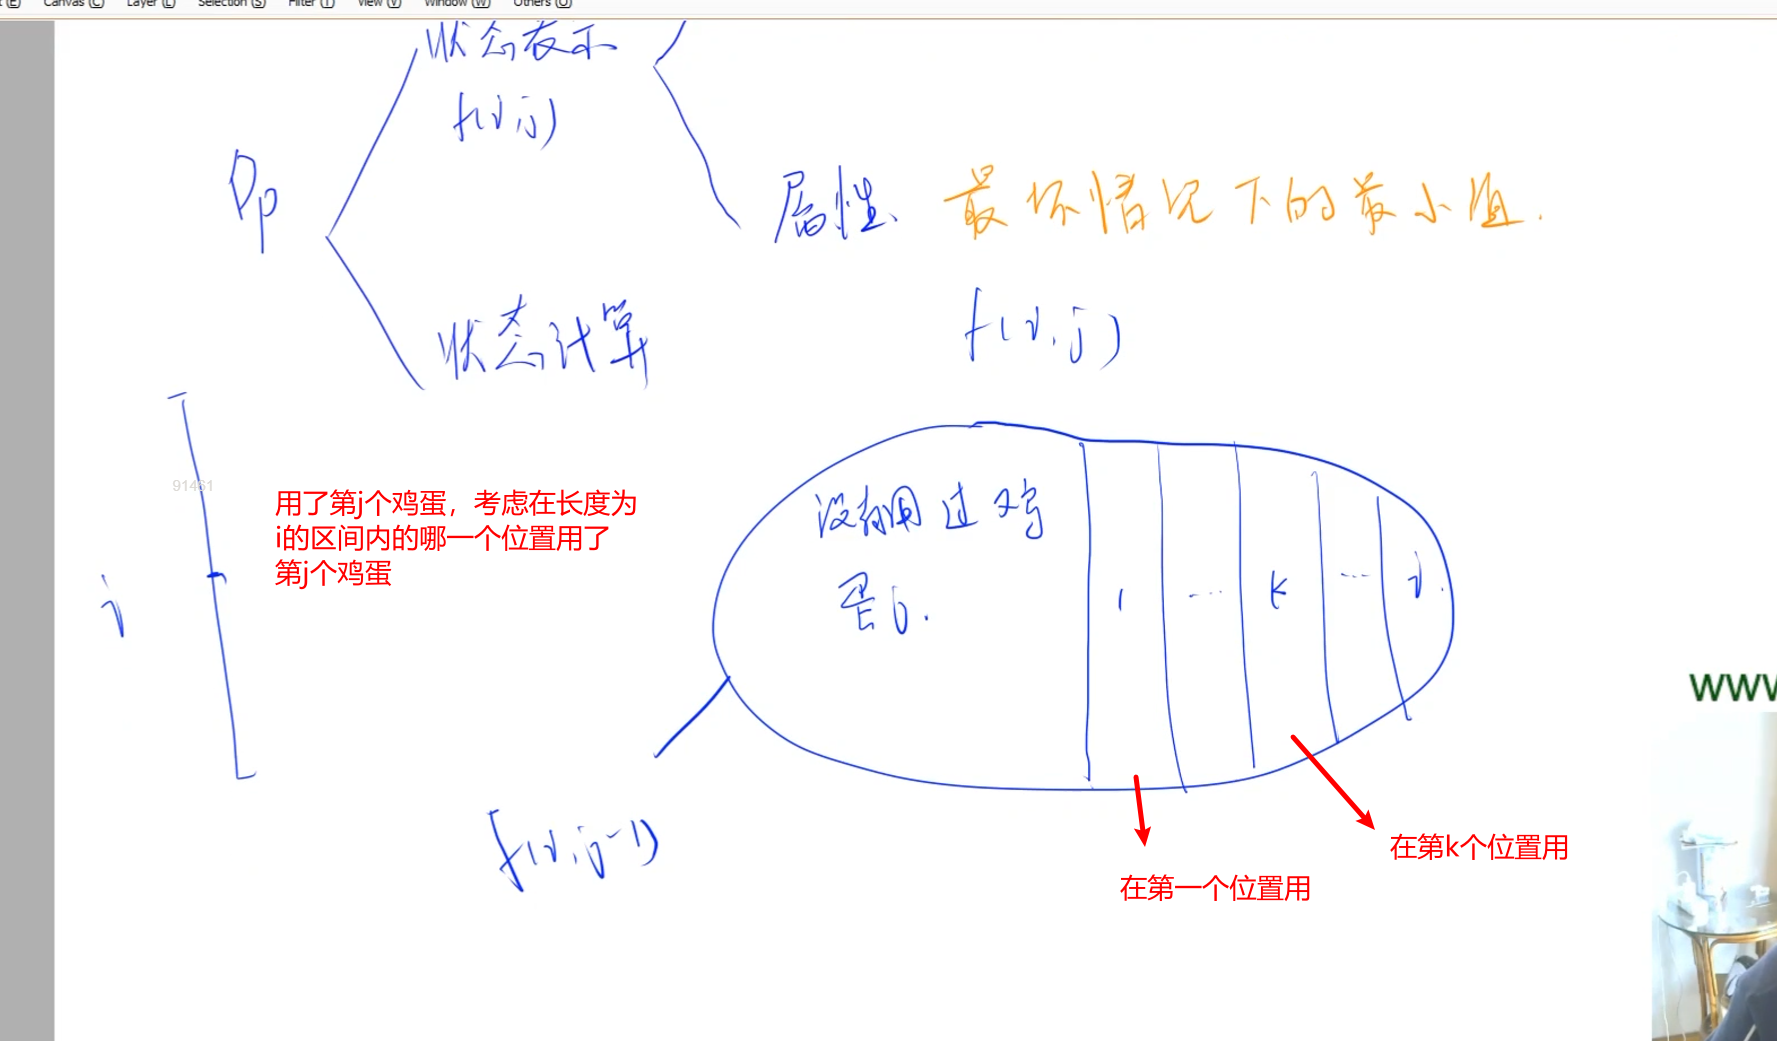 Canvas (C) Layer (L) Selection (S) Filter (I) View (V) Window (W) Others (O)
状态表示
f(i,j)
Dp
属性、最坏情况下的最小值.
f(i,j)
状态计算
91461
用了第j个鸡蛋，考虑在长度为
i的区间内的哪一个位置用了
第j个鸡蛋
i
没有用过鸡
蛋j.
1 ... k ... i.
www
f(i,j-1)
在第k个位置用
在第一个位置用